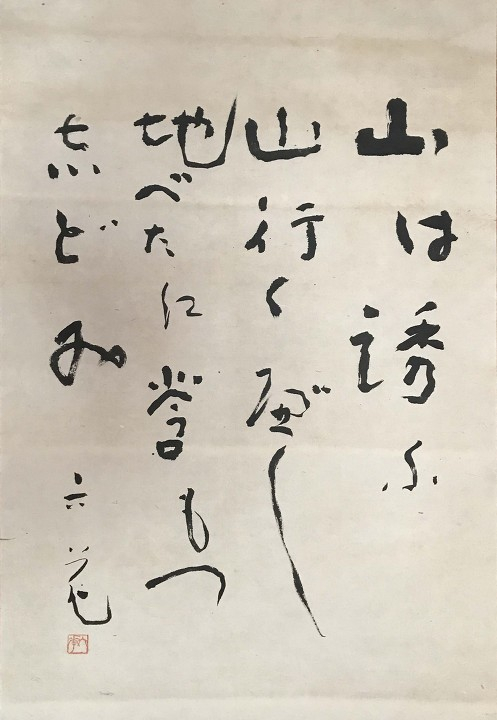 山は誘ふ
山行くべし
地べたに莟もつ
志どみ
六花